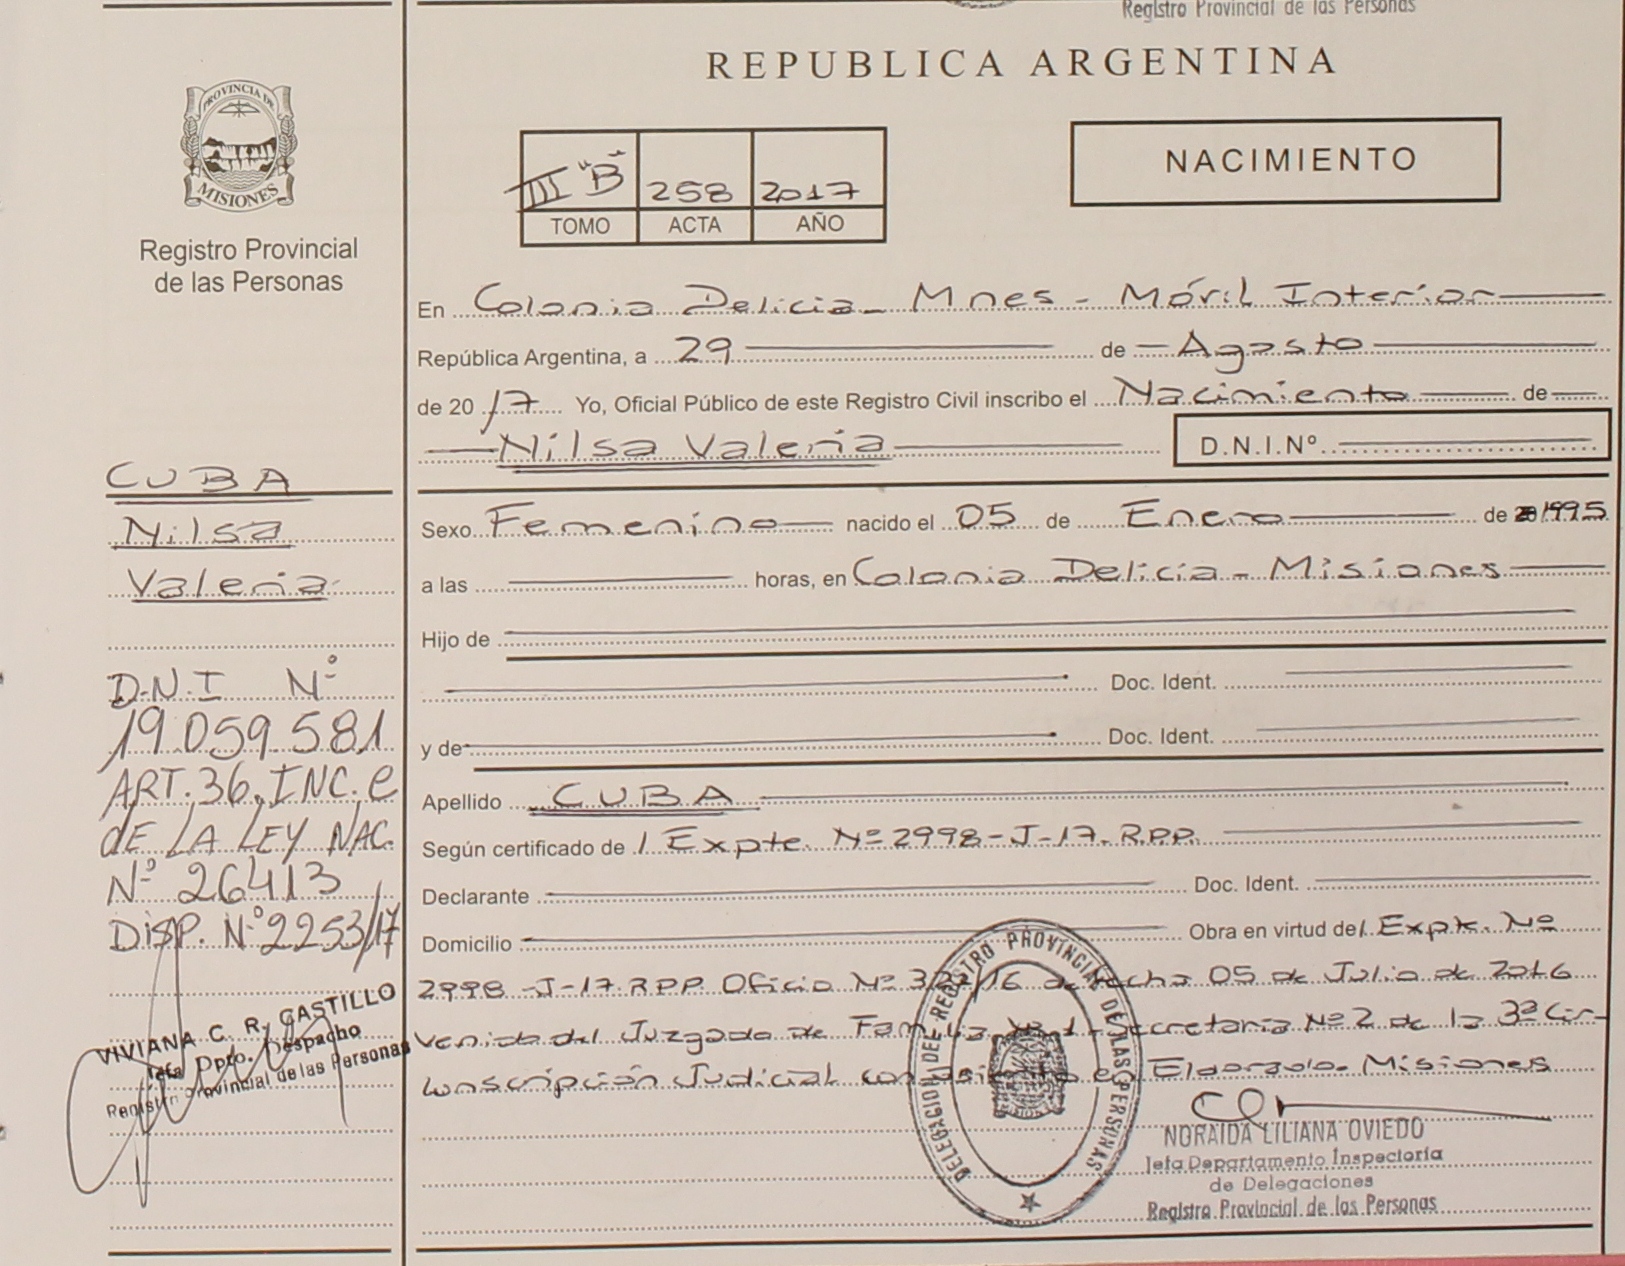 Registro Provincial de las Personas
REPUBLICA ARGENTINA
PROVINCIA DE
MISIONES
Registro Provincial
de las Personas
III "B" 258 2017
TOMO ACTA AÑO
NACIMIENTO
En Colonia Delicia - Mnes - Móvil Interior
República Argentina, a 29 de Agosto
de 2017 Yo, Oficial Público de este Registro Civil inscribo el Nacimiento de
Nilsa Valeria D.N.I.Nº
Sexo Femenino nacido el 05 de Enero de 1995
a las horas, en Colonia Delicia - Misiones
Hijo de
Doc. Ident.
y de Doc. Ident.
Apellido CUBA
Según certificado de / Expte. Nº 2998-J-17. R.P.P.
Declarante Doc. Ident.
Domicilio Obra en virtud de / Expte. Nº
2998-J-17. R.P.P. Oficio Nº /16 de fecha 05 de Julio de 2016
Venido del Juzgado de Familia Nº 1 Secretaria Nº 2 de la 3ª Cir-
conscripción Judicial con asiento en Eldorado. Misiones
DELEGACION DEL REGISTRO PROVINCIAL DE LAS PERSONAS
NORAIDA LILIANA OVIEDO
Jefa Departamento Inspectoría
de Delegaciones
Registro Provincial de las Personas
CUBA
Nilsa
Valeria
D.N.I Nº
19.059.581
ART. 36, INC. e
de LA LEY NAC.
Nº 26413
DISP. Nº 2253/17
VIVIANA C. R. CASTILLO
Jefa Dpto. Despacho
Registro Provincial de las Personas